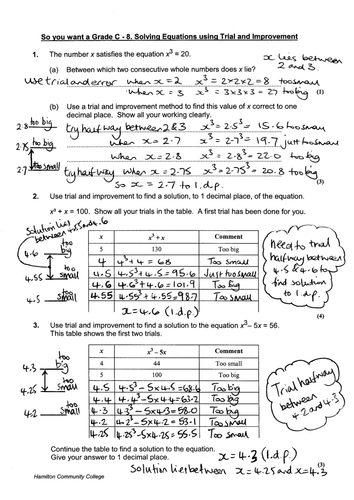 So you want a Grade C - 8. Solving Equations using Trial and Improvement
1. The number x satisfies the equation x³ = 20.
x lies between
2 and 3.
(a) Between which two consecutive whole numbers does x lie?
use trial and error when x = 2 x³ = 2×2×2 = 8 too small
when x = 3 x³ = 3×3×3 = 27 too big (1)
(b) Use a trial and improvement method to find this value of x correct to one
decimal place. Show all your working clearly.
2.8 too big
2.75 too big
2.7 too small
try half way between 2 & 3 x³ = 2.5³ = 15.6 too small
when x = 2.7 x³ = 2.7³ = 19.7 just too small
when x = 2.8 x³ = 2.8³ = 22.0 too big
try half way when x = 2.75 x³ = 2.75³ = 20.8 too big
So x = 2.7 to 1 d.p. (3)
2. Use trial and improvement to find a solution, to 1 decimal place, of the equation
x³ + x = 100. Show all your trials in the table. A first trial has been done for you.
Solution lies
between 4.5 and 4.6
4.6 too big
4.55 too small
4.5 too small
x x³ + x Comment
5 130 Too big
4 4³ + 4 = 68 Too small
4.5 4.5³ + 4.5 = 95.6 Just too small
4.6 4.6³ + 4.6 = 101.9 Too big
4.55 4.55³ + 4.55 = 98.7 Too small
x = 4.6 (1.d.p.)
Need to trial
halfway between
4.5 & 4.6 to
find solution
to 1.d.p.
(4)
3. Use trial and improvement to find a solution to the equation x³ – 5x = 56.
This table shows the first two trials.
4.3 too big
4.25 too small
4.2 too small
x x³ – 5x Comment
4 44 Too small
5 100 Too big
4.5 4.5³ - 5×4.5 = 68.6 Too big
4.4 4.4³ - 5×4.4 = 63.2 Too big
4.3 4.3³ - 5×4.3 = 58.0 Too big
4.2 4.2³ - 5×4.2 = 53.1 Too small
4.25 4.25³ - 5×4.25 = 55.5 Too small
Trial halfway
between
4.2 and 4.3
Continue the table to find a solution to the equation.
Give your answer to 1 decimal place.
x = 4.3 (1.d.p.)
(3)
Solution lies between x = 4.25 and x = 4.3
Hamilton Community College